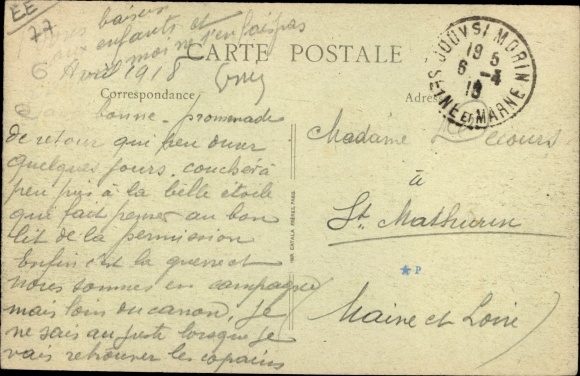 EE
77
baiser
enfants et
moi ne s'en fais pas
6 Avril 1918
CARTE POSTALE
Correspondance
Adresse
JOUY S/ MORIN
19 5
6 - 4
18
SEINE ET MARNE
bonne promenade
de retour qui peu durer
quelques jours. couché à
peu près à la belle étoile
que fait penser au bon
lit de la permission
Enfin c'est la guerre et
nous sommes en campagne
mais loin du canon, je
ne sais au juste lorsque je
vais retrouver les copains
IMP. CATALA FRÈRES, PARIS
Madame Decours
à
St. Mathurin
P
Maine et Loire